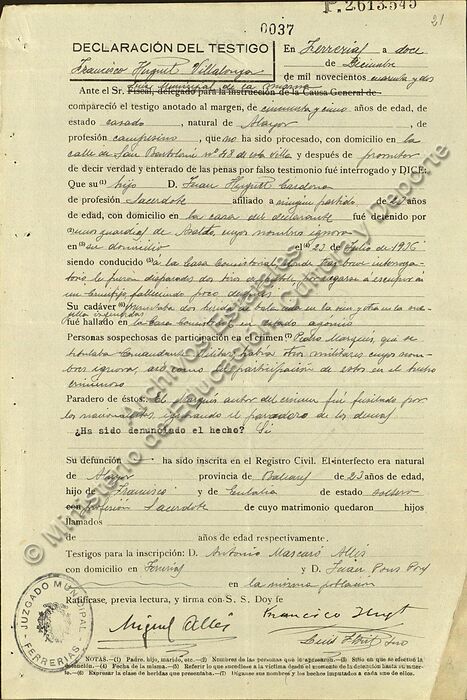 P. 2613545
21
0037
DECLARACIÓN DEL TESTIGO
Francisco Huguet Villalonga
En Ferrerias a doce
de Diciembre
de mil novecientos cuarenta y dos
Juez Municipal de la misma
Ante el Sr. Fiscal, delegado para la instrucción de la Causa General
compareció el testigo anotado al margen, de cincuenta y cinco años de edad, de
estado casado, natural de Alayor, de
profesión campesino, que no ha sido procesado, con domicilio en la
calle de San Bartolomé nº 48 de esta villa y después de prometer
de decir verdad y enterado de las penas por falso testimonio fué interrogado y DICE:
Que su (1) hijo D. Juan Huguet Cardona
de profesión Sacerdote afiliado a ningún partido de 23 años
de edad, con domicilio en la casa del declarante fué detenido por
(2) unos guardias de Asalto, cuyos nombres ignora
en (3) su domicilio el (4) 23 de Julio de 1936
siendo conducido (5) a la Casa Consistorial, donde tras breve interroga-
torio le fueron disparados dos tiros de pistola por negarse a escupir a
un Crucifijo falleciendo poco después
Su cadáver (6) presentaba dos heridas de bala una en la sien y otra en la
fué hallado en la Casa Consistorial en estado agónico
Personas sospechosas de participación en el crimen (7) Pedro Marqués, que se
titulaba Comandante Militar, había otros militares cuyos nom-
bres ignora, así como la participación de estos en el hecho
criminoso
Paradero de éstos: El Marqués autor del crimen fué fusilado por
los nacionalistas ignorando el paradero de los demás
¿Ha sido denunciado el hecho? Sí
Su defunción ha sido inscrita en el Registro Civil. El interfecto era natural
de Alayor provincia de Baleares de 23 años de edad,
hijo de Francisco y de Eulalia de estado soltero
con profesión Sacerdote de cuyo matrimonio quedaron hijos
llamados
de años de edad respectivamente.
Testigos para la inscripción: D. Antonio Mascaró Allés
con domicilio en Ferrerias y D. Juan Pons Pons
en la misma población
Ratifícase, previa lectura, y firma con S. S. Doy fe
Miguel Allés
Francisco Huguet
JUZGADO MUNICIPAL
FERRERIAS
NOTAS.—(1) Padre, hijo, marido, etc.—(2) Nombres de las personas que lo apresaron.—(3) Sitio en que se efectuó la
detención.—(4) Fecha de la misma.—(5) Referir lo que sucediese a la víctima desde el momento de la detención hasta su muer-
te.—(6) Expresar la clase de heridas que presentaba.—(7) Díganse sus nombres y los hechos imputados a cada uno de ellos.
© Ministerio de Educación, Cultura y Deporte
Archivos Estatales